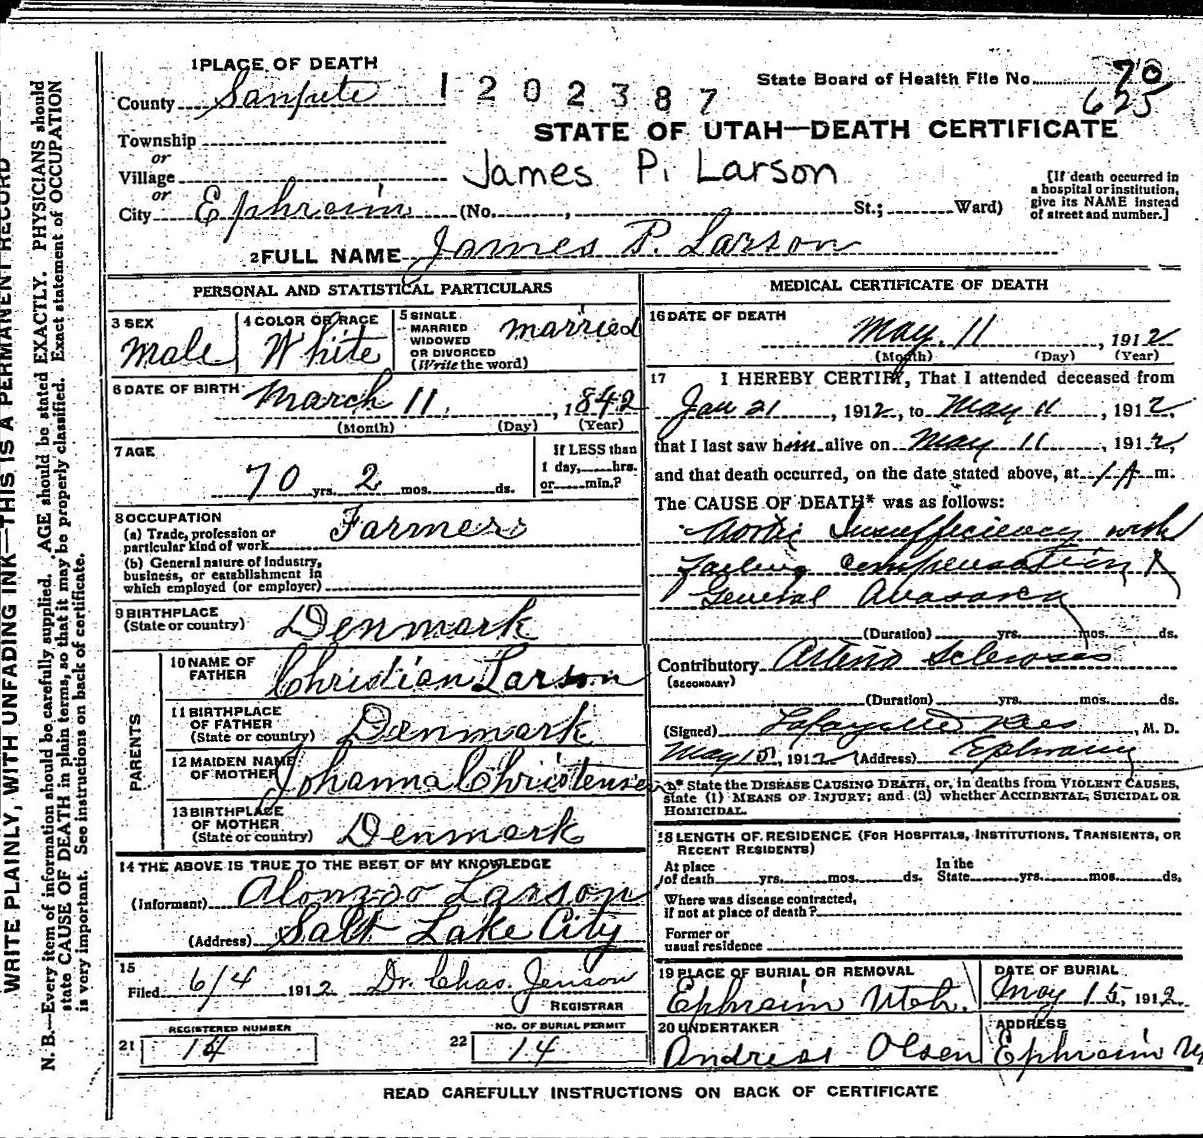 1 PLACE OF DEATH
County Sanpete
1202387
State Board of Health File No. 70
625
STATE OF UTAH—DEATH CERTIFICATE
Township
or
Village
or
James P. Larson
City Ephraim (No. , St.; Ward)
[If death occurred in
a hospital or institution,
give its NAME instead
of street and number.]
2 FULL NAME James P. Larson
PERSONAL AND STATISTICAL PARTICULARS
3 SEX
Male
4 COLOR OR RACE
White
5 SINGLE
MARRIED
WIDOWED
OR DIVORCED
(Write the word)
married
6 DATE OF BIRTH
March 11, 1842
(Month) (Day) (Year)
7 AGE
70 yrs. 2 mos. ds.
If LESS than
1 day, hrs.
or min.?
8 OCCUPATION
(a) Trade, profession or
particular kind of work Farmer
(b) General nature of Industry,
business, or establishment in
which employed (or employer)
9 BIRTHPLACE
(State or country) Denmark
PARENTS
10 NAME OF
FATHER Christian Larson
11 BIRTHPLACE
OF FATHER
(State or country) Denmark
12 MAIDEN NAME
OF MOTHER Johanna Christensen
13 BIRTHPLACE
OF MOTHER
(State or country) Denmark
14 THE ABOVE IS TRUE TO THE BEST OF MY KNOWLEDGE
(Informant) Alonzo Larson
(Address) Salt Lake City
15
Filed 6/4 1912 Dr. Chas. Jenson
REGISTRAR
REGISTERED NUMBER
21 14
NO. OF BURIAL PERMIT
22 14
MEDICAL CERTIFICATE OF DEATH
16 DATE OF DEATH
May. 11, 1912
(Month) (Day) (Year)
17 I HEREBY CERTIFY, That I attended deceased from
Jan 21, 1912, to May 11, 1912,
that I last saw him alive on May 11, 1912,
and that death occurred, on the date stated above, at 1 A m.
The CAUSE OF DEATH* was as follows:
Aortic Insufficiency with
Failing compensation &
General Anasarca
(Duration) yrs. mos. ds.
Contributory Arterio Sclerosis
(SECONDARY)
(Duration) yrs. mos. ds.
(Signed) Lafayette Rees, M. D.
May 15, 1912 (Address) Ephraim
* State the DISEASE CAUSING DEATH, or, in deaths from VIOLENT CAUSES,
state (1) MEANS OF INJURY; and (2) whether ACCIDENTAL, SUICIDAL OR
HOMICIDAL.
18 LENGTH OF RESIDENCE (FOR HOSPITALS, INSTITUTIONS, TRANSIENTS, OR
RECENT RESIDENTS)
At place
of death yrs. mos. ds.
In the
State yrs. mos. ds.
Where was disease contracted,
if not at place of death?
Former or
usual residence
19 PLACE OF BURIAL OR REMOVAL
Ephraim Utah.
DATE OF BURIAL
May 15, 1912
20 UNDERTAKER
Andreas Olsen
ADDRESS
Ephraim
READ CAREFULLY INSTRUCTIONS ON BACK OF CERTIFICATE
WRITE PLAINLY, WITH UNFADING INK—THIS IS A PERMANENT RECORD
N. B.—Every item of information should be carefully supplied. AGE should be stated EXACTLY. PHYSICIANS should
state CAUSE OF DEATH in plain terms, so that it may be properly classified. Exact statement of OCCUPATION
is very important. See instructions on back of certificate.